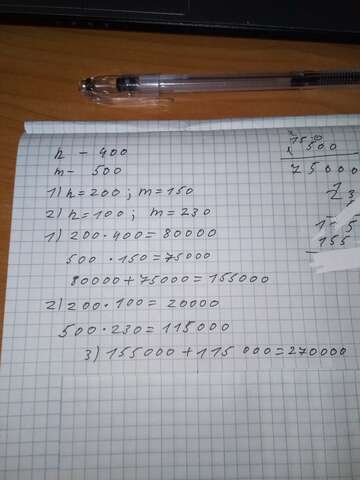 h - 400
m - 500
1) h = 200 ; m = 150
2) h = 100 ; m = 230
1) 200 · 400 = 80000
500 · 150 = 75000
80000 + 75000 = 155000
2) 200 · 100 = 20000
500 · 230 = 115000
3) 155000 + 115 000 = 270000
500
75000
23
155